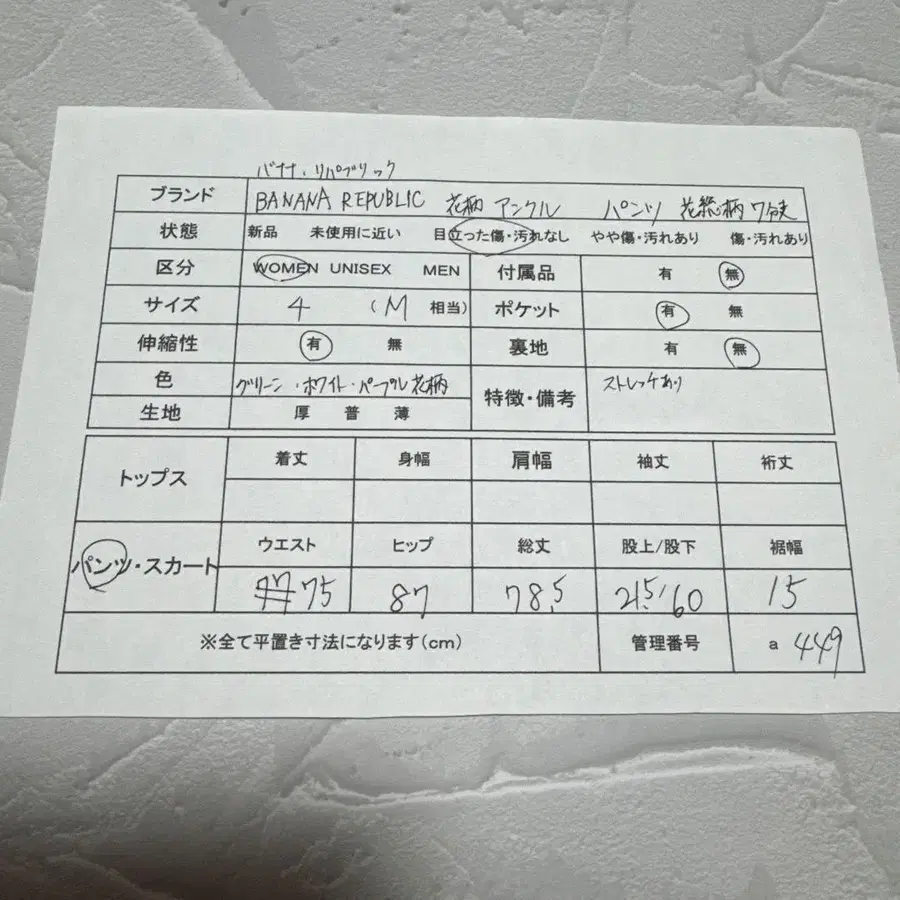 バナナ・リパブリック
ブランド BANANA REPUBLIC 花柄 アンクル パンツ 花総柄 7分丈
状態 新品 未使用に近い 目立った傷・汚れなし やや傷・汚れあり 傷・汚れあり
区分 WOMEN UNISEX MEN 付属品 有 無
サイズ 4 (M 相当) ポケット 有 無
伸縮性 有 無 裏地 有 無
色 グリーン・ホワイト・パープル花柄 特徴・備考 ストレッチあり
生地 厚 普 薄
トップス 着丈 身幅 肩幅 袖丈 裄丈
パンツ・スカート ウエスト ヒップ 総丈 股上/股下 裾幅
75 87 78.5 21.5/60 15
※全て平置き寸法になります(cm) 管理番号 a 449